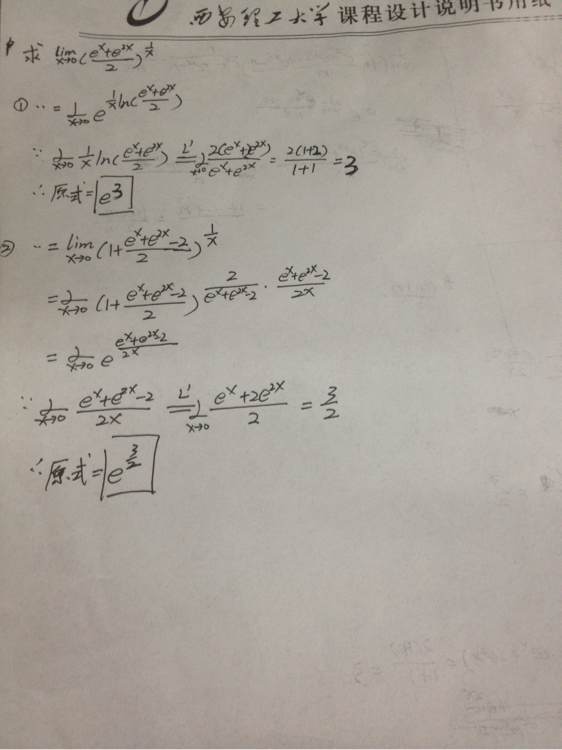 西安理工大学课程设计说明书用纸
求 lim x→0 (e^x+e^2x / 2)^(1/x)
① ·· = l x→0 e^(1/x ln(e^x+e^2x / 2))
∵ l x→0 1/x ln(e^x+e^2x / 2) =L'= l x→0 2(e^x+2e^2x) / e^x+e^2x = 2(1+2) / 1+1 = 3
∴ 原式 = e^3
② ·· = lim x→0 (1+ e^x+e^2x-2 / 2)^(1/x)
= l x→0 (1+ e^x+e^2x-2 / 2)^(2 / e^x+e^2x-2 · e^x+e^2x-2 / 2x)
= l x→0 e^(e^x+e^2x-2 / 2x)
∵ l x→0 e^x+e^2x-2 / 2x =L'= l x→0 e^x+2e^2x / 2 = 3/2
∴ 原式 = e^(3/2)